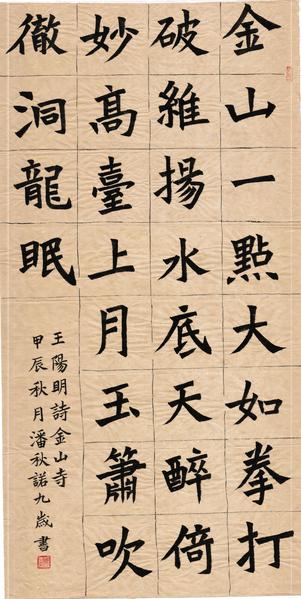 金山一點大如拳打
破維揚水底天醉倚
妙髙臺上月玉簫吹
徹洞龍眠
王陽明詩金山寺
甲辰秋月潘秋諾九歲書